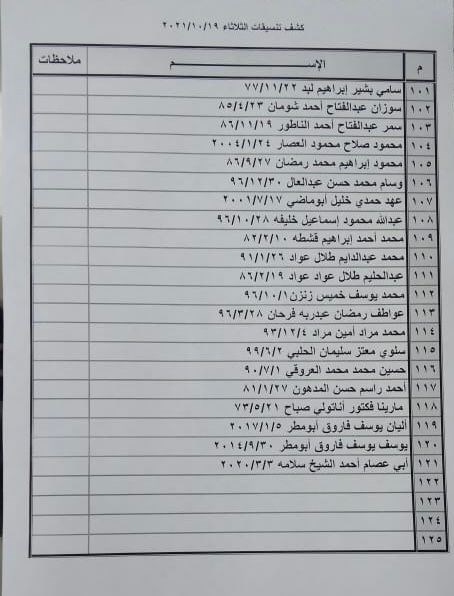 كشف تنسيقات الثلاثاء ٢٠٢١/١٠/١٩
م الإســـــم ملاحظات
١٠١ سامي بشير إبراهيم لبد ٧٧/١١/٢٢
١٠٢ سوزان عبدالفتاح أحمد شومان ٨٥/٤/٢٣
١٠٣ سمر عبدالفتاح أحمد الناطور ٨٦/١١/١٩
١٠٤ محمود صلاح محمود العصار ٢٠٠٤/١/٢٤
١٠٥ محمود إبراهيم محمد رمضان ٨٦/٩/٢٧
١٠٦ وسام محمد حسن عبدالعال ٩٦/١٢/٣٠
١٠٧ عهد حمدي خليل أبوماضي ٢٠٠١/٧/١٧
١٠٨ عبدالله محمود إسماعيل خليفه ٩٦/١٠/٢٨
١٠٩ محمد أحمد إبراهيم قشطه ٨٢/٢/١٠
١١٠ محمد عبدالدايم طلال عواد ٩١/١/٢٦
١١١ عبدالحليم طلال عواد عواد ٨٦/٢/١٩
١١٢ محمد يوسف خميس زنزن ٩٦/١٠/١
١١٣ عواطف رمضان عبدربه فرحان ٩٦/٣/٢٨
١١٤ محمد مراد أمين مراد ٩٣/١٢/٤
١١٥ سلوي معتز سليمان الحلبي ٩٩/٦/٢
١١٦ حسين محمد محمد العروقي ٩٠/٧/١
١١٧ أحمد راسم حسن المدهون ٨١/١/٢٧
١١٨ مارينا فكتور أناتولي صباح ٧٣/٥/٢١
١١٩ أليان يوسف فاروق أبومطر ٢٠١٧/١/٥
١٢٠ يوسف يوسف فاروق أبومطر ٢٠١٤/٩/٣٠
١٢١ أبي عصام أحمد الشيخ سلامه ٢٠٢٠/٣/٣
١٢٢
١٢٣
١٢٤
١٢٥